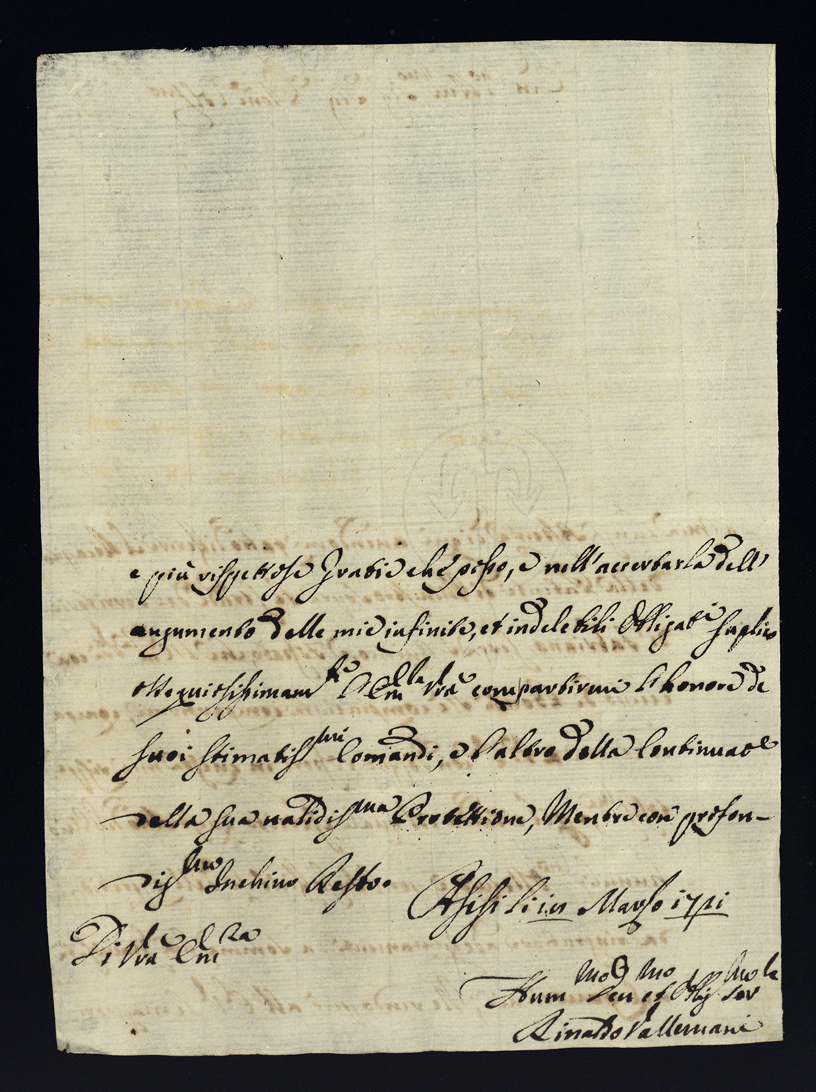 e più rispettose gratie che posso, e nell'accertarla dell'
augumento delle mie infinite, et indelebili obligat.e suplico
ossequiosissimam.te l'Em.za V.ra compartirmi l'honore de
suoi stimatiss.mi Comandi, e l'altro della Continuat.e
della sua validiss.ma Protettione, Mentre con profon-
diss.mo Inchino Resto.
Assisi li 10 Marzo 1721
Di V.ra Em.za
Hum.mo Deu.mo et Oblig.mo Ser.
Rinaldo Vallemani